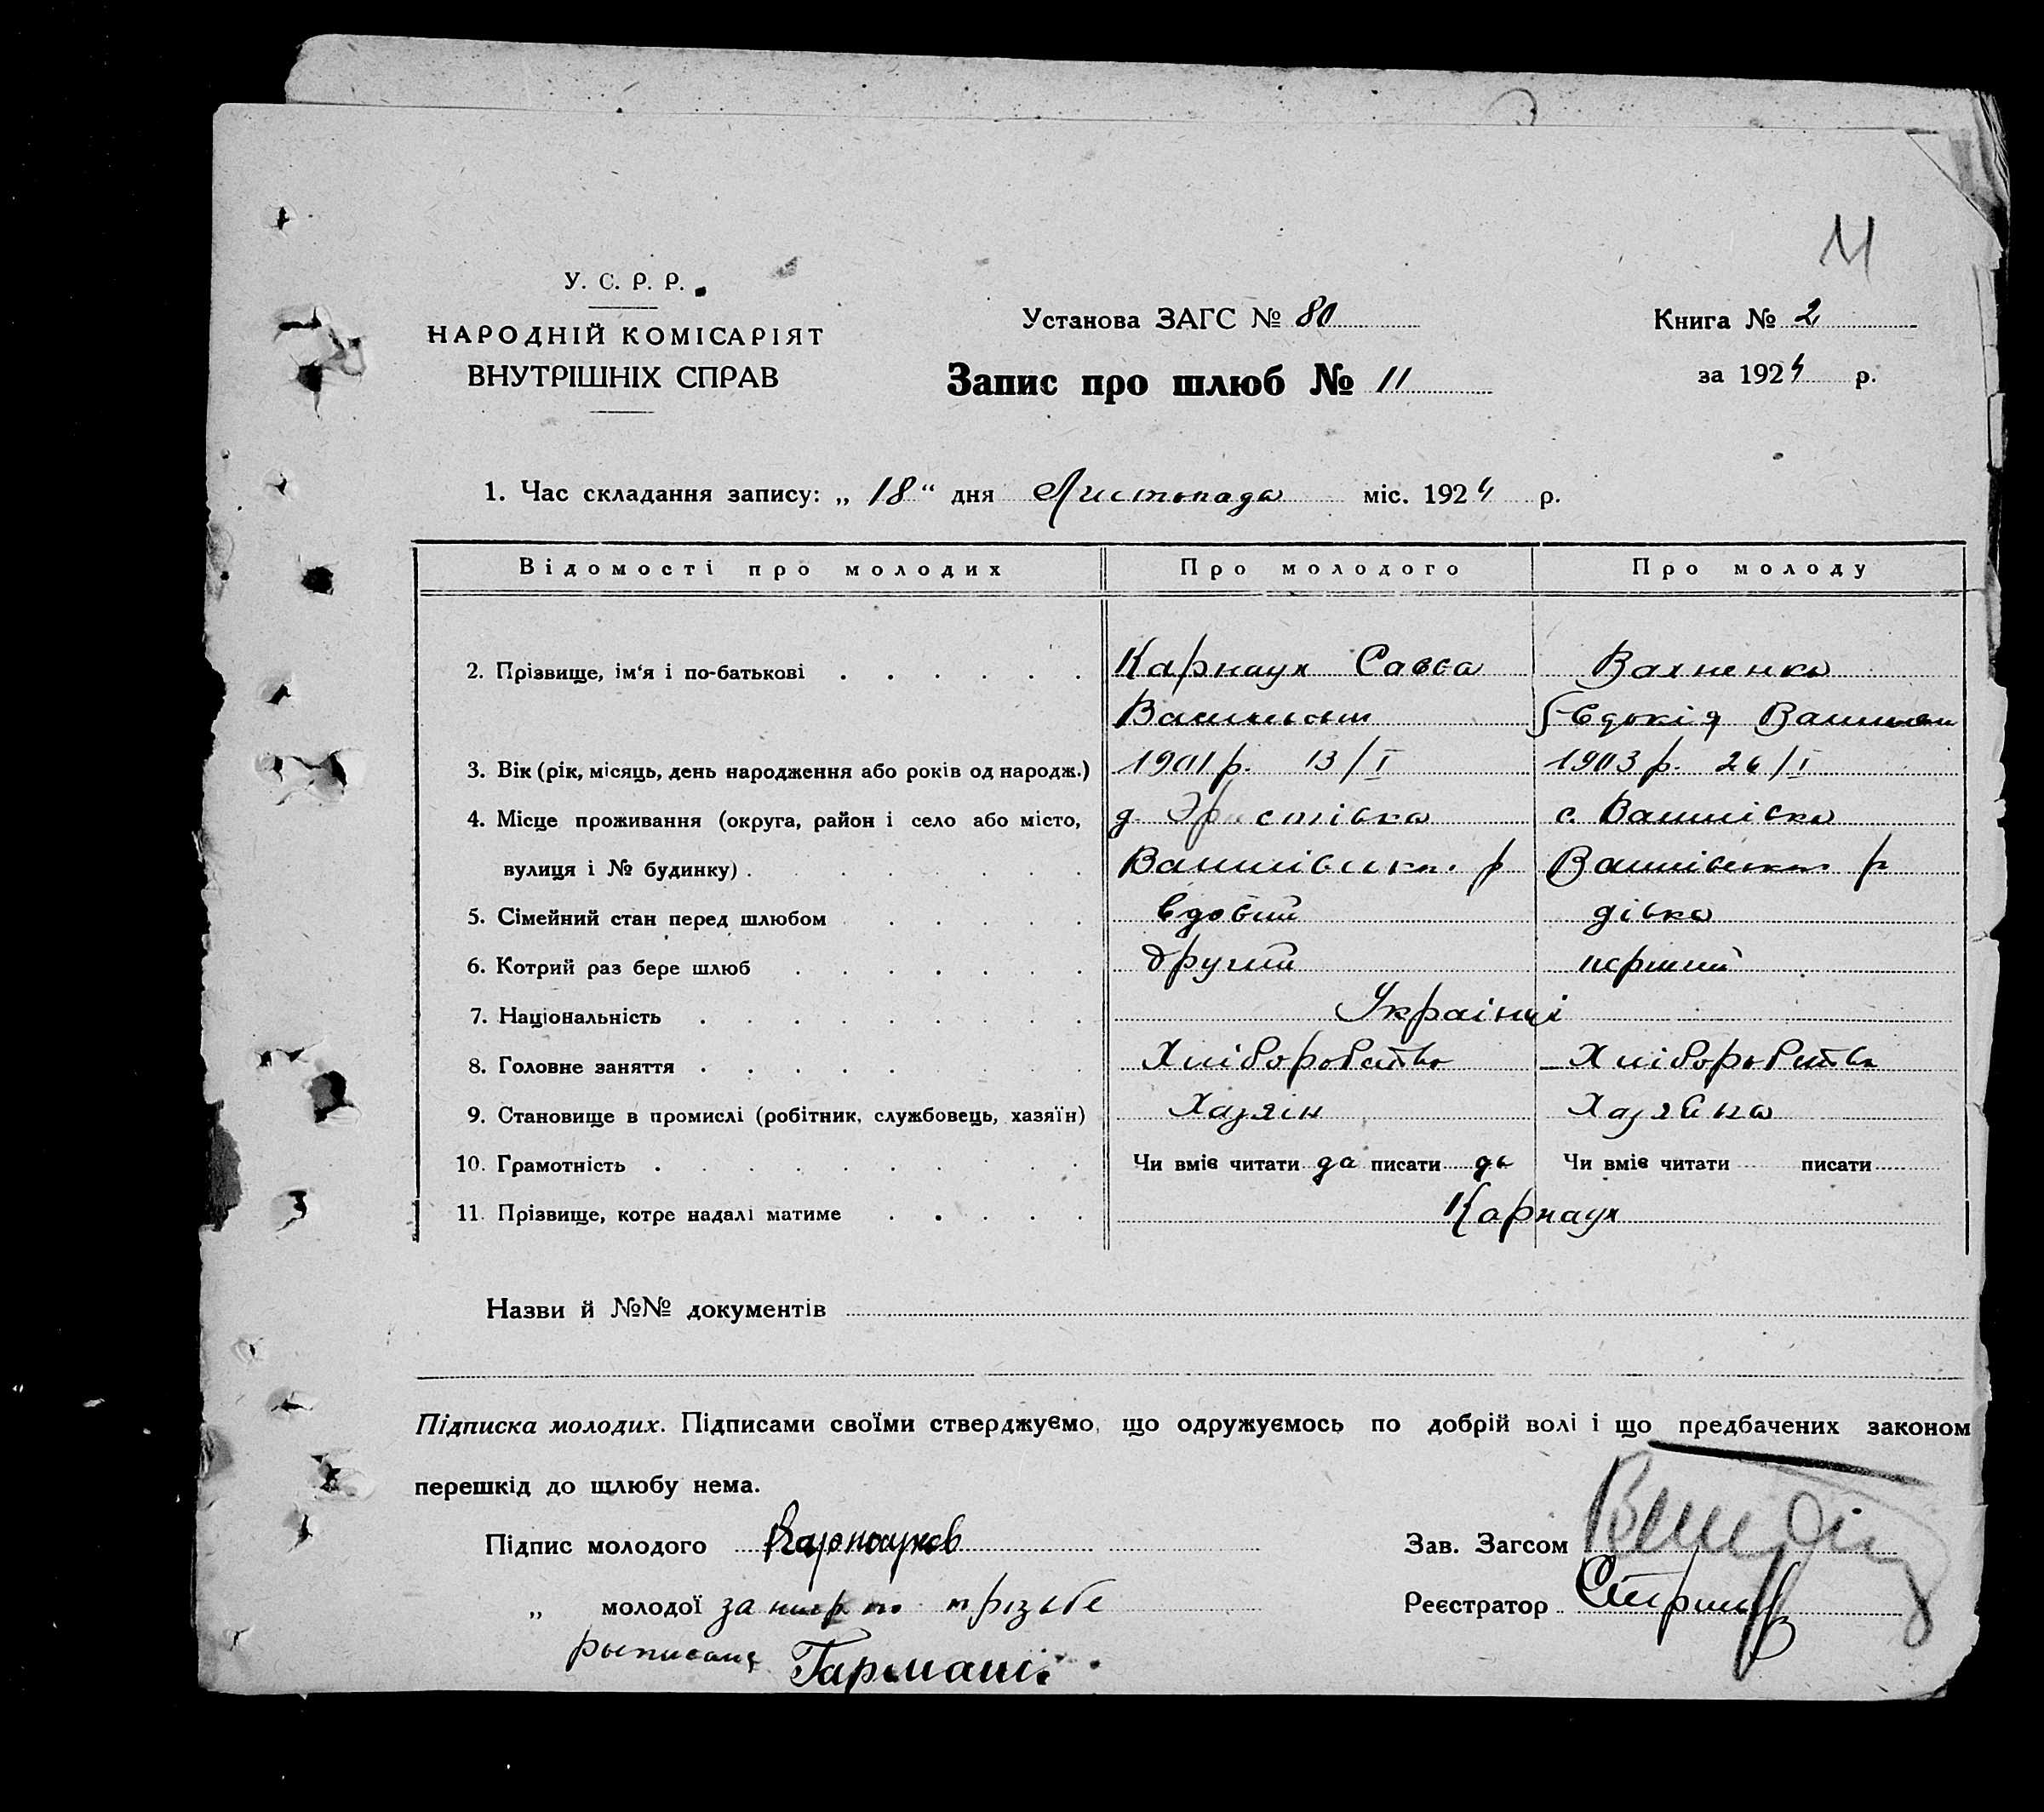 11
У. С. Р. Р.
НАРОДНІЙ КОМІСАРІЯТ
ВНУТРІШНІХ СПРАВ
Установа ЗАГС № 80
Запис про шлюб № 11
Книга № 2
за 1924 р.
1. Час складання запису: „ 18 “ дня Листопада міс. 1924 р.
Відомості про молодих Про молодого Про молоду
2. Прізвище, ім‘я і по-батькові Карнаух Савва Вахненко
Евдокія
3. Вік (рік, місяць, день народження або років од народж.) 1901 р. 13/I 1903 р. 26/I
4. Місце проживання (округа, район і село або місто, д. с.
вулиця і № будинку) р р
5. Сімейний стан перед шлюбом вдовий дівка
6. Котрий раз бере шлюб другий перший
7. Національність Українці
8. Головне заняття Хліборобство Хліборобство
9. Становище в промислі (робітник, службовець, хазяїн) Хазяін Хазяйка
10. Грамотність Чи вміє читати да писати да Чи вміє читати писати
11. Прізвище, котре надалі матиме Карнаух
Назви й №№ документів
Підписка молодих. Підписами своїми стверджуємо, що одружуємось по добрій волі і що предбачених законом
перешкід до шлюбу нема.
Підпис молодого Зав. Загсом
„ молодої за Реєстратор
Гармаш